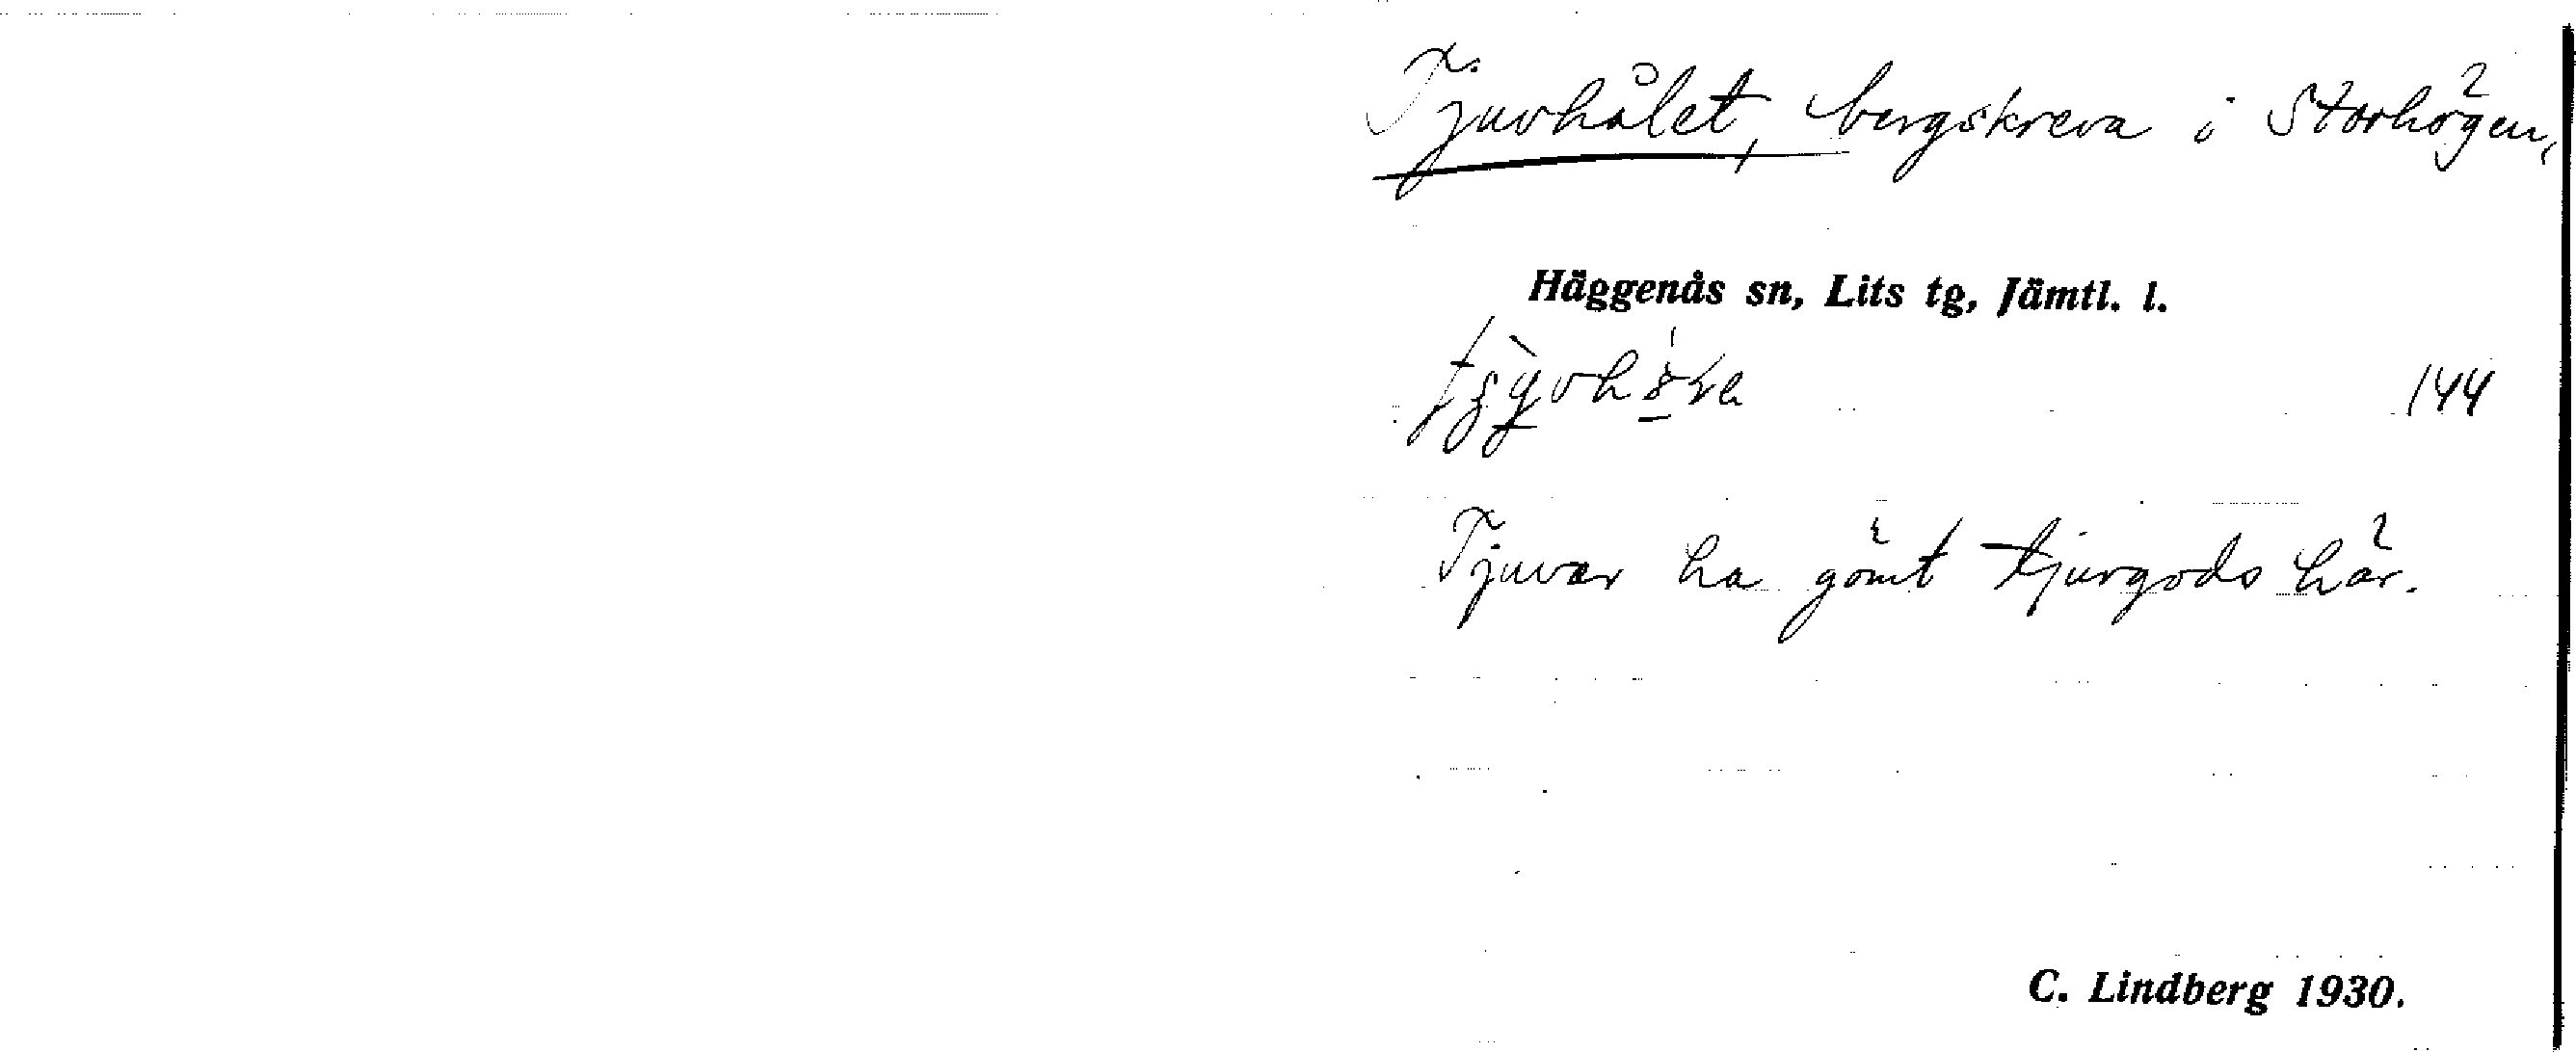 Tjuvhålet, bergskreva i Storhögen,
Häggenås sn, Lits tg, Jämtl. l.
144
Tjuvar ha gömt tjuvgods här.
C. Lindberg 1930.